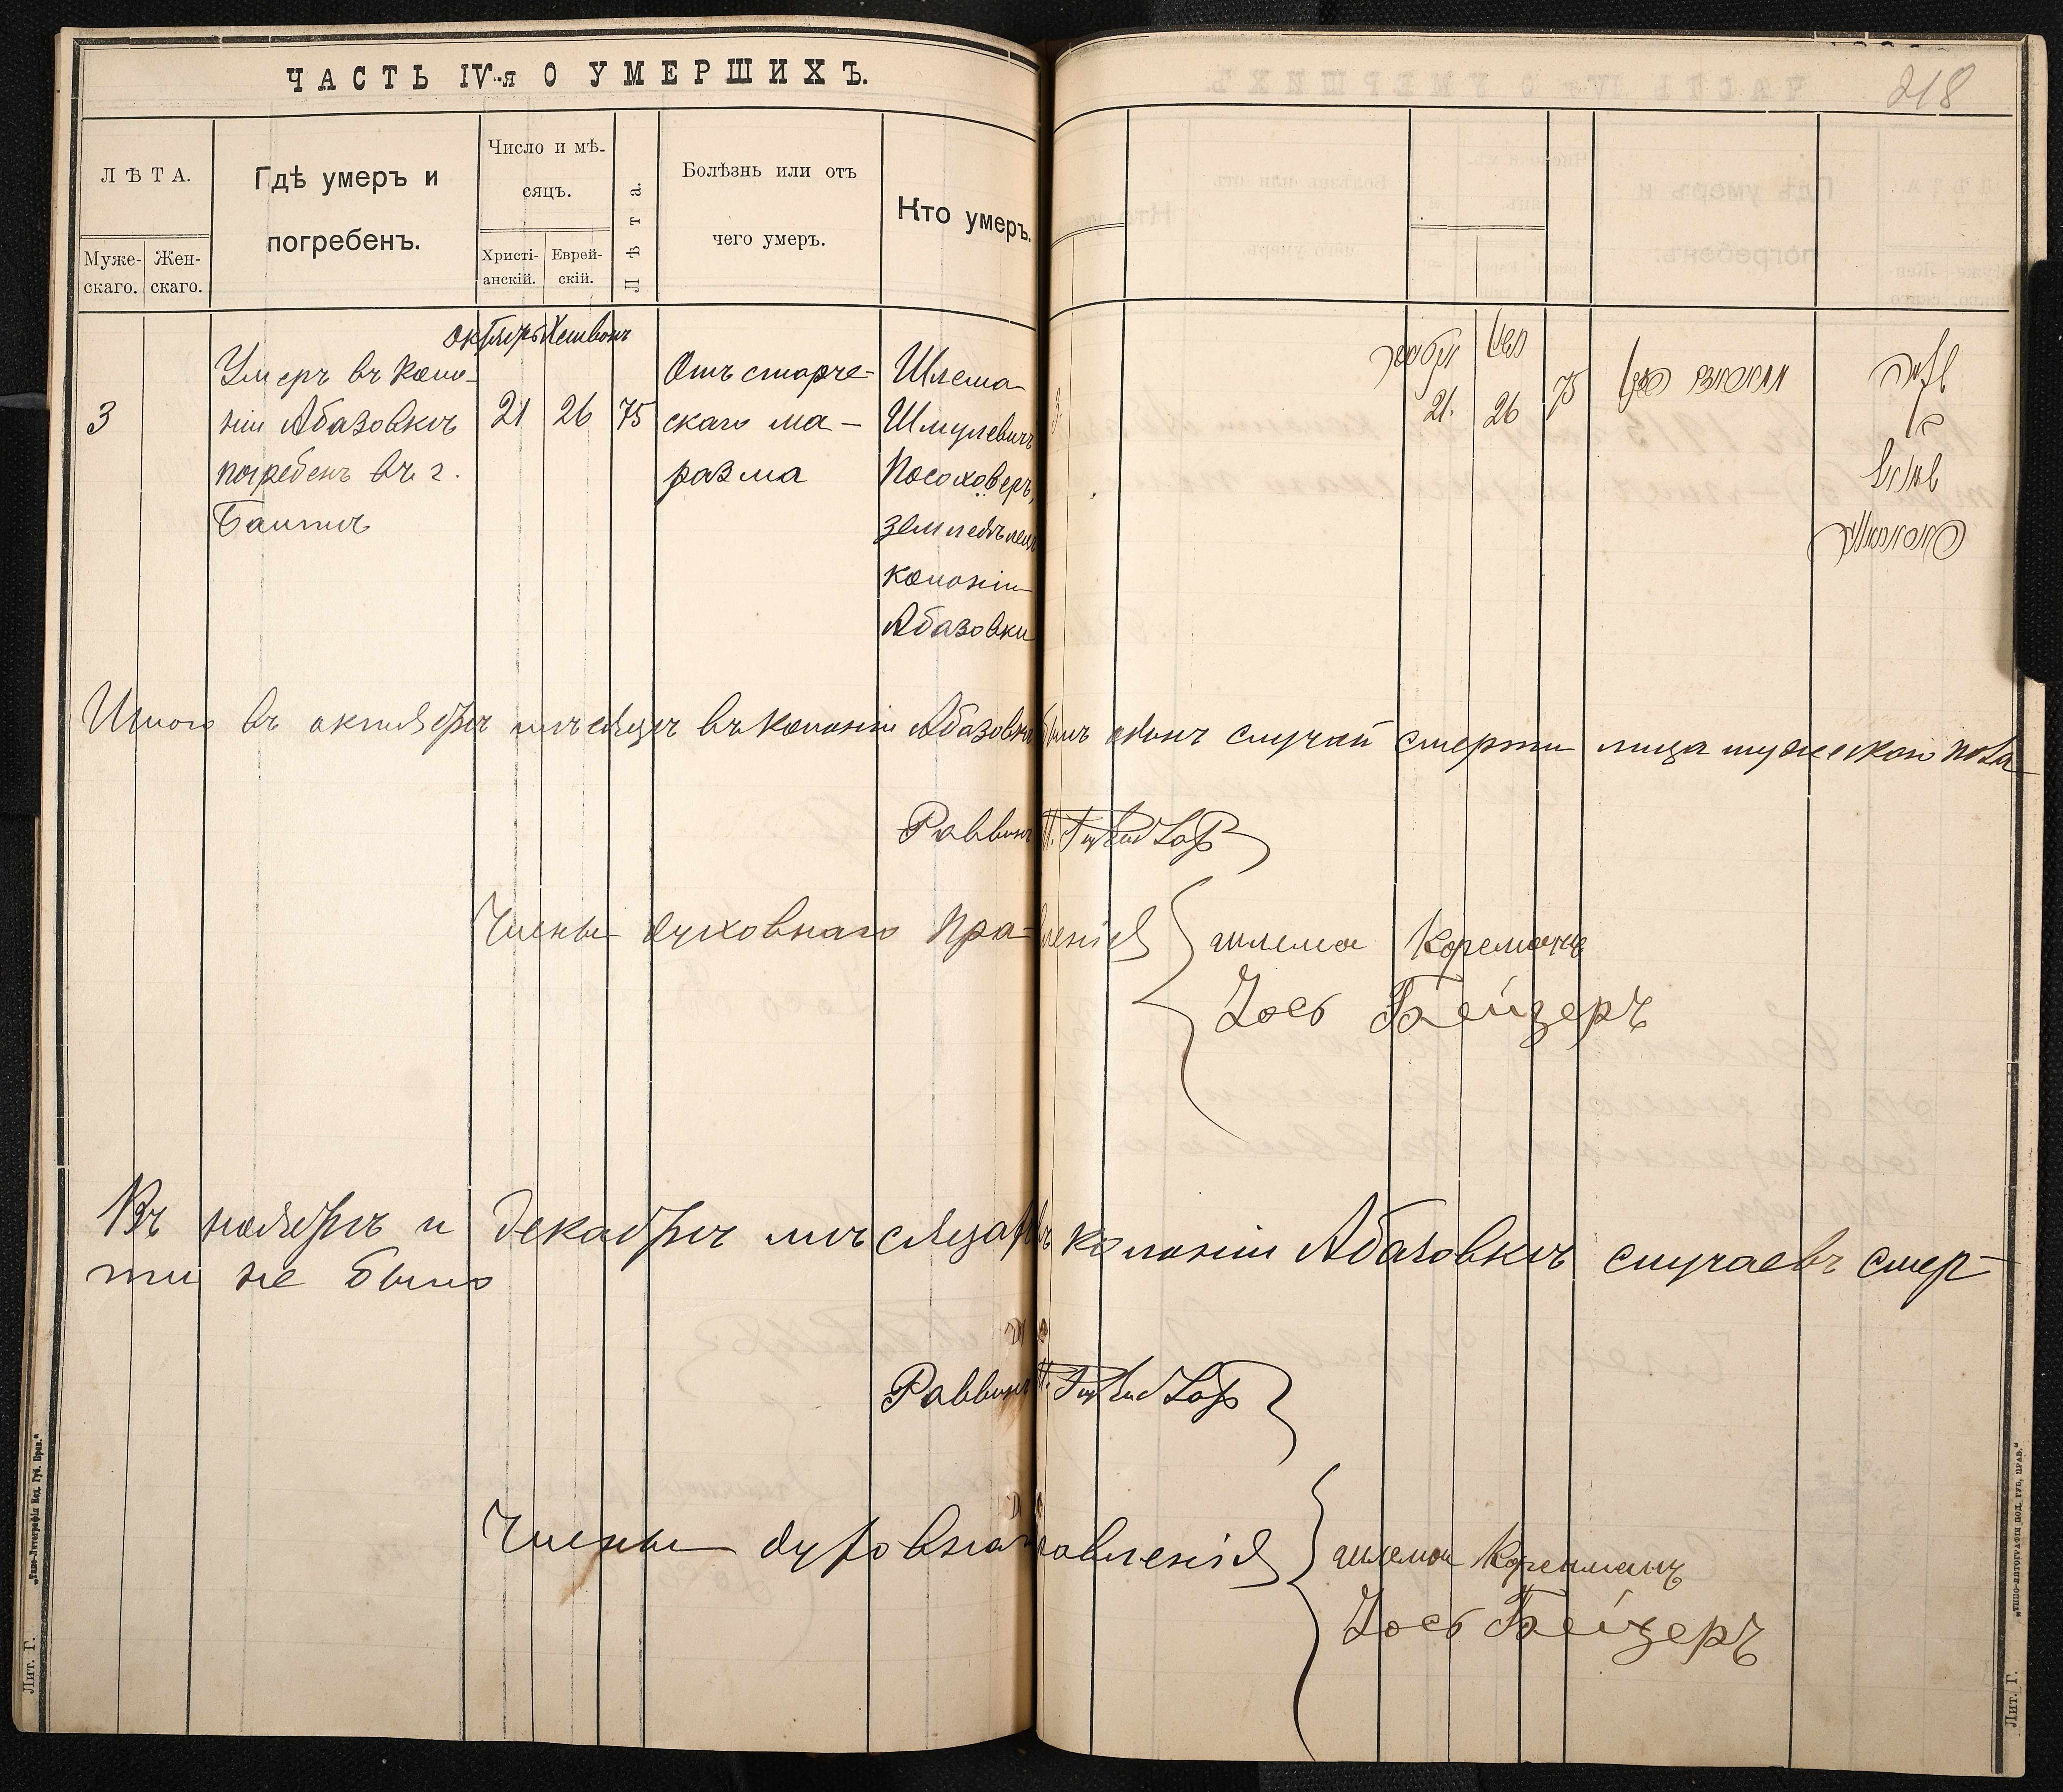 ЧАСТЬ IV-я О УМЕРШИХЪ.
218
ЛѢТА.
Мужескаго.
Женскаго.
Гдѣ умеръ и
погребенъ.
Число и мѣ-
сяцъ.
Христі-
анскій.
Еврей-
скій.
Лѣта.
Болѣзнь или отъ
чего умеръ.
Кто умеръ.
октябрь Хешвонъ
3
Умеръ въ коло-
ніи Абазовкѣ
погребенъ въ г.
Балтѣ
21
26
75
Отъ старче-
скаго ма-
разма
Шлема
Шмулевичъ
Посоховеръ,
земледѣлецъ
колоніи
Абазовки
3.
21.
26
75
Итого въ октябрѣ мѣсяцѣ въ колоніи Абазовкѣ былъ одинъ случай смерти лица мужескаго пола
Раввинъ
Члены духовнаго правленія
шлема Кореманъ
Іосъ Бейдеръ
Въ ноябрѣ и декабрѣ мѣсяцахъ въ колоніи Абазовкѣ случаевъ смер-
ти не было
Раввинъ
Члены духовна правленія
шлема Коренманъ
Іосъ Бейдеръ
Лит. Г.
„Типо-Литографія Под. Губ. Прав.“
Лит. Г.
„ТИПО-ЛИТОГРАФІЯ ПОД. ГУБ. ПРАВ.“